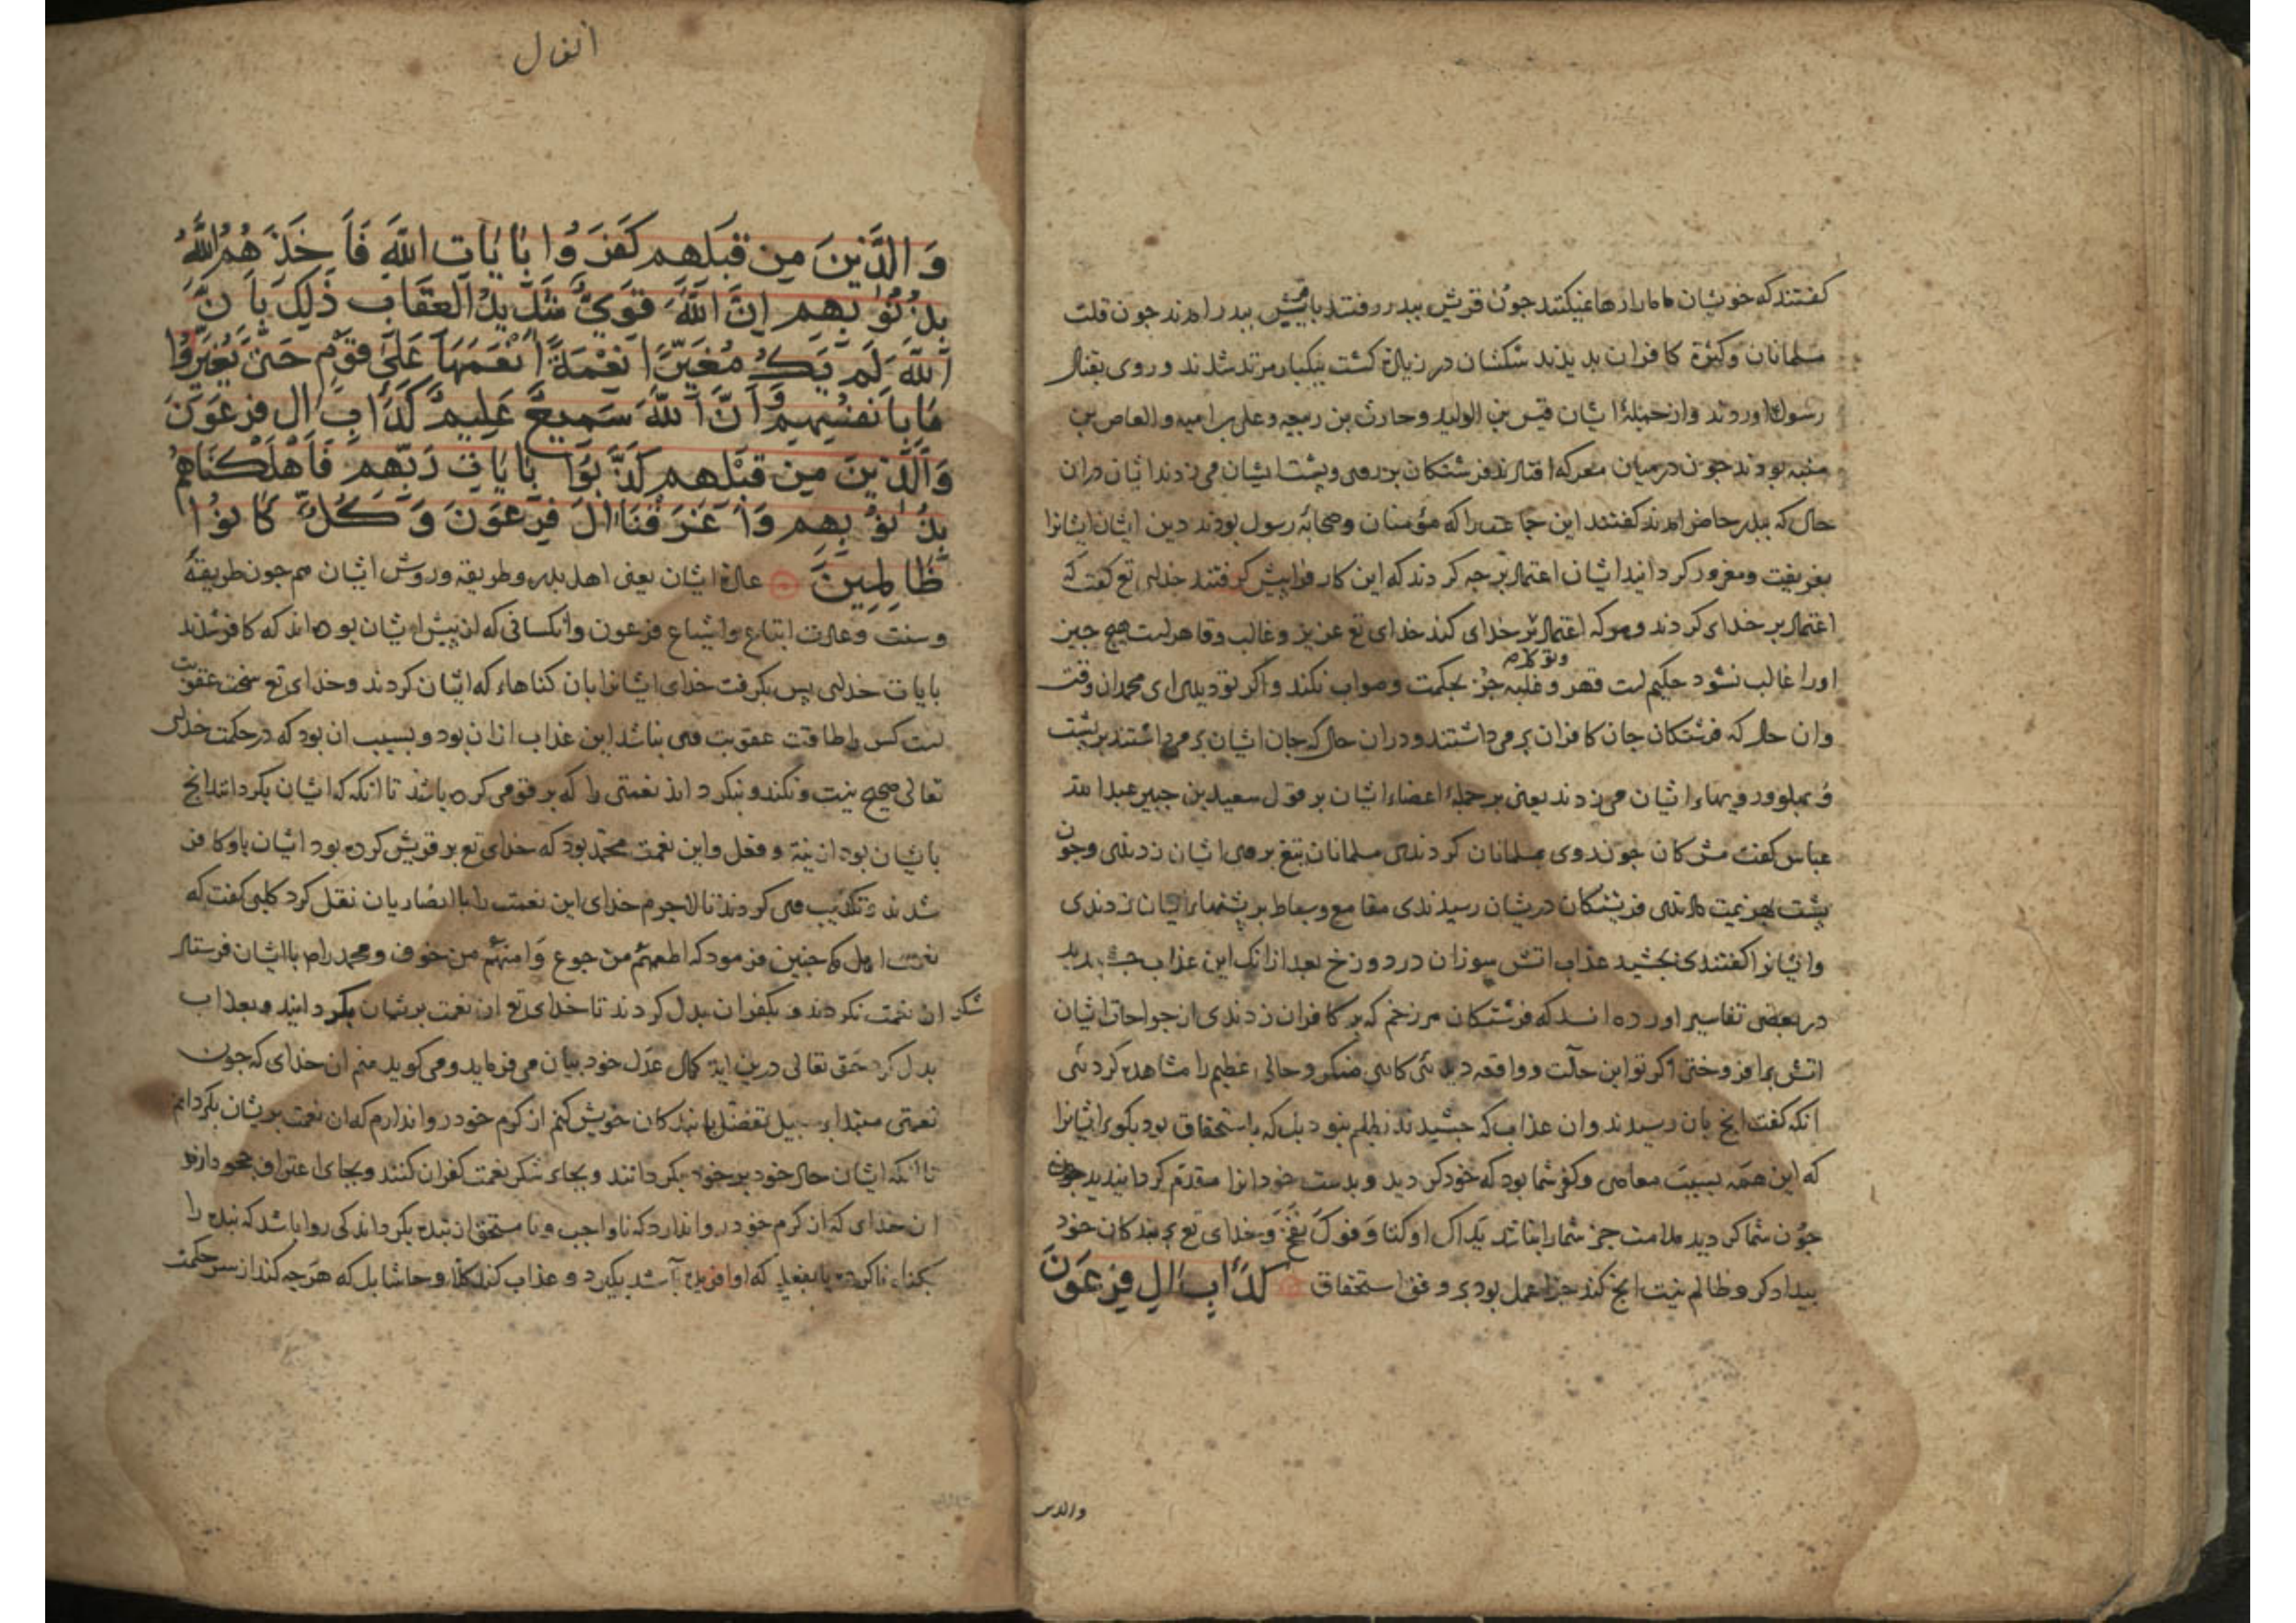 كفتند كه خويشان ما ما را رها نميكنند جون قريش ببدر رفتند با ببدر آمدند جون قلت
مسلمانان وكثرة كافران بديدند شكشان در زيادة كشت بيكبار مرتد شدند و روى بقتال
رسول اوردند وازجملۀ ايشان قيس بن الوليد وحارث بن ربيعه وعلى بن اميه و العاص بن
منبه بودند جون درميان معركه افتادند فرشتكان بر روى وپشت ايشان مى زدند ايشان دران
حال كه ببدر حاضر امدند كفتند اين جماعت را كه مؤمنان وصحابۀ رسول بودند دين ايشان ايشانرا
بفريفت ومغرور كردانيد ايشان اعتماد بر جه كردند كه اين كار فرا پيش كرفتند خداى تع كفت كه
اعتماد بر خداى كردند وهركه اعتماد بر خداى كند خداى تع عزيز وغالب وقاهرست هيچ جيز
اورا غالب نشود حكيم است قهر وغلبه جز بحكمت وصواب نكند واكر تو ديدى اى محمد ان وقت
وان حال كه فرشتكان جان كافران برمى داشتند ودران حال كه جان ايشان برمى داشتند بر پشت
و پهلو ورويهاء ايشان مى زدند يعنى بر جملۀ اعضاء ايشان بر قول سعيد بن جبير عبد الله
عباس كفت مشركان جون روى بمسلمانان كردندى مسلمانان تيغ بر روى ايشان زدندى وجون
پشت بهزيمت دادندى فريشتكان دريشان رسيدندى مقامع وسياط بر پشتهاء ايشان زدندى
وايشانرا كفتندى بجشيد عذاب اتش سوزان در دوزخ بعد ازانك اين عذاب جشيديد
در بعضى تفاسير اورده اند كه فرشتكان هر زخم كه بر كافران زدندى از جراحات ايشان
اتش برافروختى اكر تو اين حالت وواقعه ديدئى كارى منكر وحالى عظيم را مشاهده كردئى
انكه كفت انج بان رسيدند وان عذاب كه جشيدند بظلم نبود بل كه باستحقاق بود بكوى ايشانرا
كه اين همه بسبب معاصى وكفر شما بود كه خود كرديد وبدست خود انرا مقدم كردانيديد جون
جون شما كرديد ملامت جز شما را نباشد يداك اوكتا وفوك نفخ وخداى تع بر بندكان خود
بيدادكر وظالم نيست انج كند جزاء عمل بود بر وفق استحقاق كَدَأْبِ الِ فِرْعَوْنَ
والدين
انفال
وَالَّذِينَ مِن قَبْلِهِم كَفَرُوا بِايَاتِ اللَّهِ فَأَخَذَهُمُ اللَّهُ
بِذُنُوبِهِم اِنَّ اللَّهَ قَوِىٌّ شَدِيدُ العِقَابِ ذَلِكَ بِأَنَّ
اللَّهَ لَم يَكُ مُغَيِّرًا نِعْمَةً اَنْعَمَهَا عَلَى قَوْمٍ حَتَّى يُغَيِّرُوا
مَا بِأَنفُسِهِم وَأَنَّ اللَّهَ سَمِيعٌ عَلِيمٌ كَدَأْبِ الِ فِرْعَوْنَ
وَالَّذِينَ مِن قَبْلِهِم كَذَّبُوا بِايَاتِ رَبِّهِم فَأَهْلَكْنَاهُم
بِذُنُوبِهِم وَأَغْرَقْنَا الَ فِرْعَوْنَ وَكُلٌّ كَانُوا
ظَالِمِينَ عادة ايشان يعنى اهل بدر وطريقه وروش ايشان هم جون طريقۀ
وسنت وعادت اتباع واشياع فرعون وانكسانى كه از پيش ايشان بوده اند كه كافر شدند
بايات خداى پس بكرفت خداى ايشانرا بان كناهاء كه ايشان كردند وخداى تع سخت عقوبت
است كس را طاقت عقوبت وى نباشد اين عذاب ازان بود وبسبب ان بود كه در حكمت خداى
تعالى صحيح نيست ونكند ونبكرداند نعمتى را كه بر قومى كرده باشد تا انكه كه ايشان بكردانند انج
بايشان بود از نية وفعل واين نعمت محمد بود كه خداى تع بر قريش كرده بود ايشان باو كافر
شدند وتكذيب وى كردند تا لاجرم خداى اين نعمت را با انصاريان نقل كرد كلبى كفت كه
جنين فرمود كه اطعمهم من جوع وَامنهم من خوف ومحمد را بايشان فرستاد
شكر ان نعمت نكردند وبكفران بدل كردند تا خداى تع ان نعمت برشان بكردانيد وبعذاب
بدل كرد حق تعالى درين اية كمال عدل خود بيان مى فرمايد ومى كويد منم ان خداى كه جون
نعمتى مبتدا بر سبيل تفضل با بندكان خويش كنم از كرم خود روا ندارم كه ان نعمت بريشان بكردانم
تا انكه ايشان حال خود بر خود بكردانند وبجاء شكر نعمت كفران كنند وبجاى اعتراف جحود دارند
ان خداى كه از كرم خود روا ندارد كه ناواجب ونا مستحق از بنده بكرداند كى روا باشد كه بنده را
بكناه ناكرده يا بفعلى كه او افريده باشد بكيرد وعذاب كند كلا وحاشا بل كه هرجه كند از سر حكمت